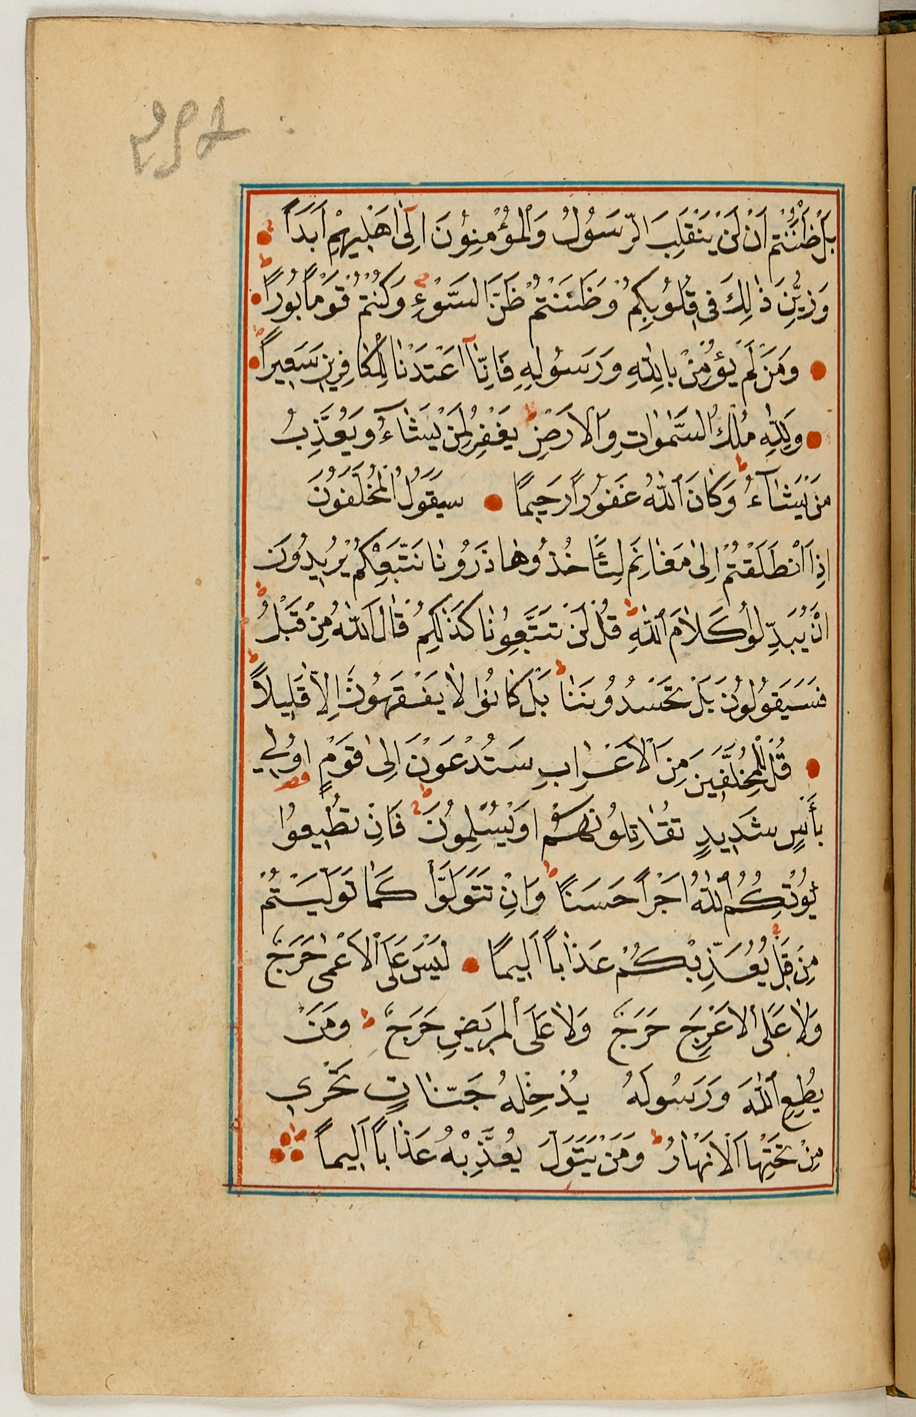 بَلْ ظَنَنْتُمْ اَنْ لَنْ يَنْقَلِبَ الرَّسُولُ وَالْمُؤْمِنُونَ اِلٰى اَهْلِيهِمْ اَبَدًا
وَزُيِّنَ ذٰلِكَ فِى قُلُوبِكُمْ وَظَنَنْتُمْ ظَنَّ السَّوْءِ وَكُنْتُمْ قَوْمًا بُورًا
وَمَنْ لَمْ يُؤْمِنْ بِاللّٰهِ وَرَسُولِهِ فَاِنَّآ اَعْتَدْنَا لِلْكَافِرِينَ سَعِيرًا
وَلِلّٰهِ مُلْكُ السَّمٰوَاتِ وَالْاَرْضِ يَغْفِرُ لِمَنْ يَشَآءُ وَيُعَذِّبُ
مَنْ يَشَآءُ وَكَانَ اللّٰهُ غَفُورًا رَحِيمًا سَيَقُولُ الْمُخَلَّفُونَ
اِذَا انْطَلَقْتُمْ اِلٰى مَغَانِمَ لِتَأْخُذُوهَا ذَرُونَا نَتَّبِعْكُمْ يُرِيدُونَ
اَنْ يُبَدِّلُوا كَلَامَ اللّٰهِ قُلْ لَنْ تَتَّبِعُونَا كَذٰلِكُمْ قَالَ اللّٰهُ مِنْ قَبْلُ
فَسَيَقُولُونَ بَلْ تَحْسُدُونَنَا بَلْ كَانُوا لَا يَفْقَهُونَ اِلَّا قَلِيلًا
قُلْ لِلْمُخَلَّفِينَ مِنَ الْاَعْرَابِ سَتُدْعَوْنَ اِلٰى قَوْمٍ اُولِي
بَأْسٍ شَدِيدٍ تُقَاتِلُونَهُمْ اَوْ يُسْلِمُونَ فَاِنْ تُطِيعُوا
يُؤْتِكُمُ اللّٰهُ اَجْرًا حَسَنًا وَاِنْ تَتَوَلَّوْا كَمَا تَوَلَّيْتُمْ
مِنْ قَبْلُ يُعَذِّبْكُمْ عَذَابًا اَلِيمًا لَيْسَ عَلَى الْاَعْمٰى حَرَجٌ
وَلَا عَلَى الْاَعْرَجِ حَرَجٌ وَلَا عَلَى الْمَرِيضِ حَرَجٌ وَمَنْ
يُطِعِ اللّٰهَ وَرَسُولَهُ يُدْخِلْهُ جَنَّاتٍ تَجْرِي
مِنْ تَحْتِهَا الْاَنْهَارُ وَمَنْ يَتَوَلَّ يُعَذِّبْهُ عَذَابًا اَلِيمًا